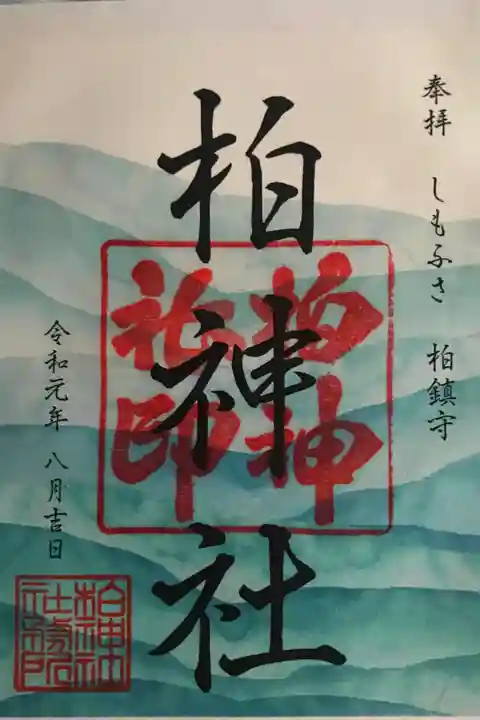 奉拝 しもふさ 柏鎮守
柏神社
柏神社印
令和元年 八月吉日
柏神社社務所印